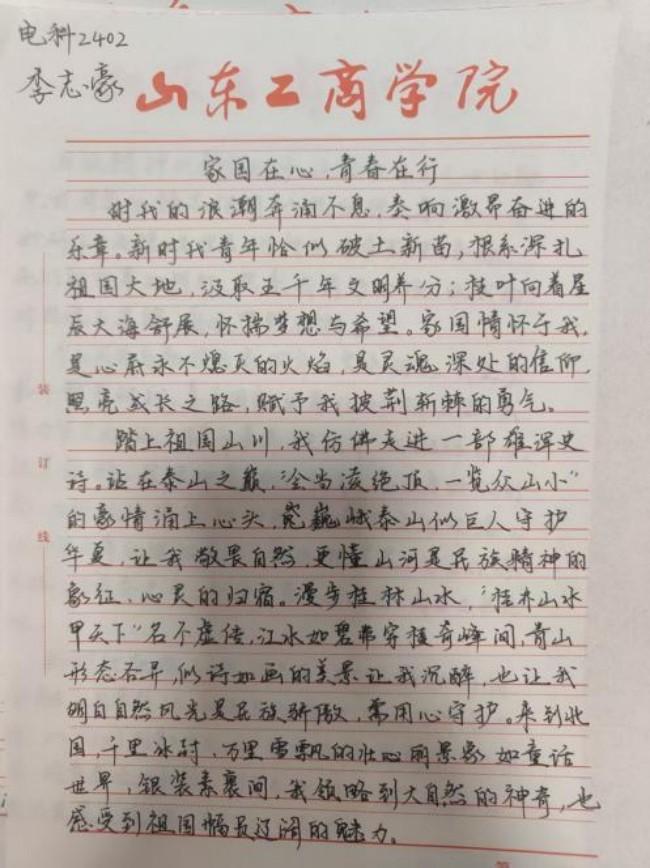 电科2402
李志豪
山东工商学院
家国在心,青春在行
时代的浪潮奔涌不息,奏响激昂奋进的
乐章。新时代青年恰似破土新苗,根系深扎
祖国大地,汲取五千年文明养分;枝叶向着星
辰大海舒展,怀揣梦想与希望。家国情怀于我,
是心底永不熄灭的火焰,是灵魂深处的信仰,
照亮成长之路,赋予我披荆斩棘的勇气。
踏上祖国山川,我仿佛走进一部雄浑史
诗。站在泰山之巅,“会当凌绝顶,一览众山小”
的豪情涌上心头,巍峨泰山似巨人守护
华夏,让我敬畏自然,更懂山河是民族精神的
象征、心灵的归宿。漫步桂林山水,“桂林山水
甲天下”名不虚传,江水如碧带穿梭奇峰间,青山
形态各异,似诗如画的美景让我沉醉,也让我
明白自然风光是民族骄傲,需用心守护。来到北
国,千里冰封,万里雪飘的壮丽景象如童话
世界,银装素裹间,我领略到大自然的神奇,也
感受到祖国幅员辽阔的魅力。
装
订
线